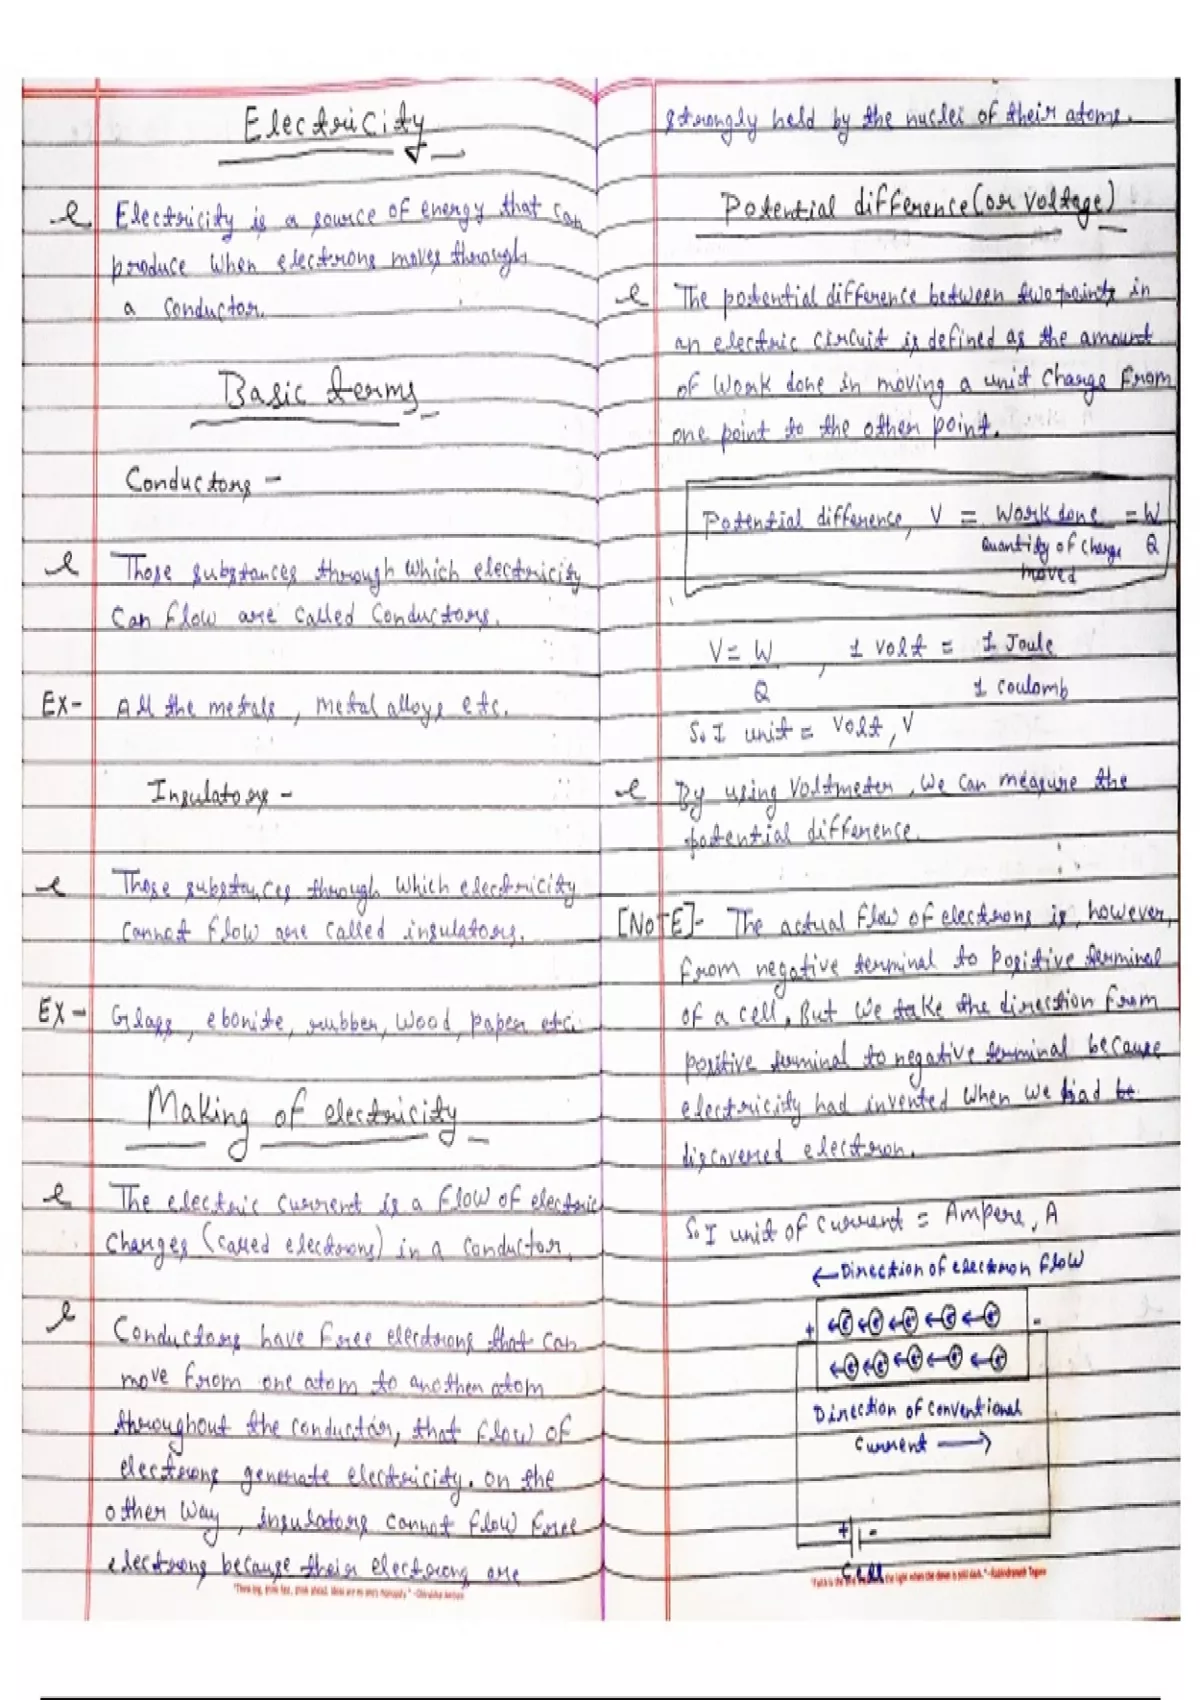 Electricity
Electricity is a source of energy that can
produce when electrons moves through
a conductor.
Basic terms
Conductors -
Those substances through which electricity
can flow are called conductors.
EX- All the metals, metal alloys etc.
Insulators -
Those substances through which electricity
cannot flow are called insulators.
EX- Glass, ebonite, rubber, wood, paper etc.
Making of electricity
The electric current is a flow of electric
charges (called electrons) in a conductor.
Conductors have free electrons that can
move from one atom to another atom
throughout the conductor, that flow of
electrons generate electricity. on the
other way, insulators cannot flow free
electrons because their electrons are
"Think big, think fast, think ahead. Ideas are no one's monopoly." -Dhirubhai Ambani
strongly held by the nuclei of their atoms.
Potential difference (or voltage)
The potential difference between two points in
an electric circuit is defined as the amount
of work done in moving a unit charge from
one point to the other point.
Potential difference, V = Work done = W
Quantity of charge Q
moved
V = W , 1 volt = 1 Joule
Q 1 coulomb
S.I unit = Volt, V
By using Voltmeter, we can measure the
potential difference.
[NOTE]- The actual flow of electrons is, however,
from negative terminal to positive terminal
of a cell, But we take the direction from
positive terminal to negative terminal because
electricity had invented when we had be
discovered electron.
S.I unit of current = Ampere, A
← Direction of electron flow
+ ←e ←e ←e ←e ←e -
←e ←e ←e ←e ←e
Direction of conventional
current →
+ -
Cell
the light when the dawn is still dark." -Rabindranath Tagore